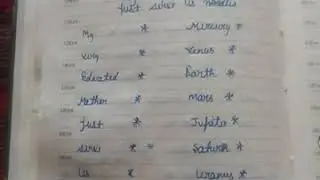 just serve us noodls
My * Mercury *
Very * Venus *
Educated * Earth *
Mother * Mars *
Just * Jupiter *
Serve * = Saturn *
Us * Uranus *